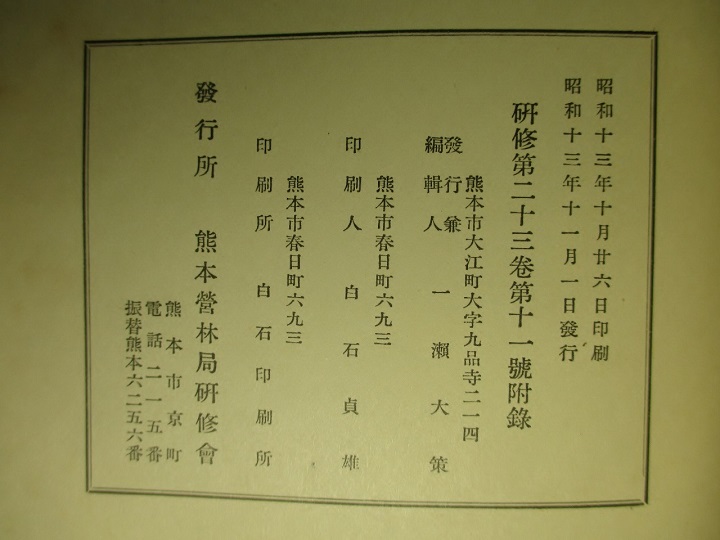 昭和十三年十月廿六日印刷
昭和十三年十一月一日發行
硏修第二十三卷第十一號附錄
熊本市大江町大字九品寺二一四
發行兼
編輯人 一瀨大策
熊本市春日町六九三
印刷人 白石貞雄
熊本市春日町六九三
印刷所 白石印刷所
發行所 熊本營林局硏修會
熊本市京町
電話二一五番
振替熊本六二五六番